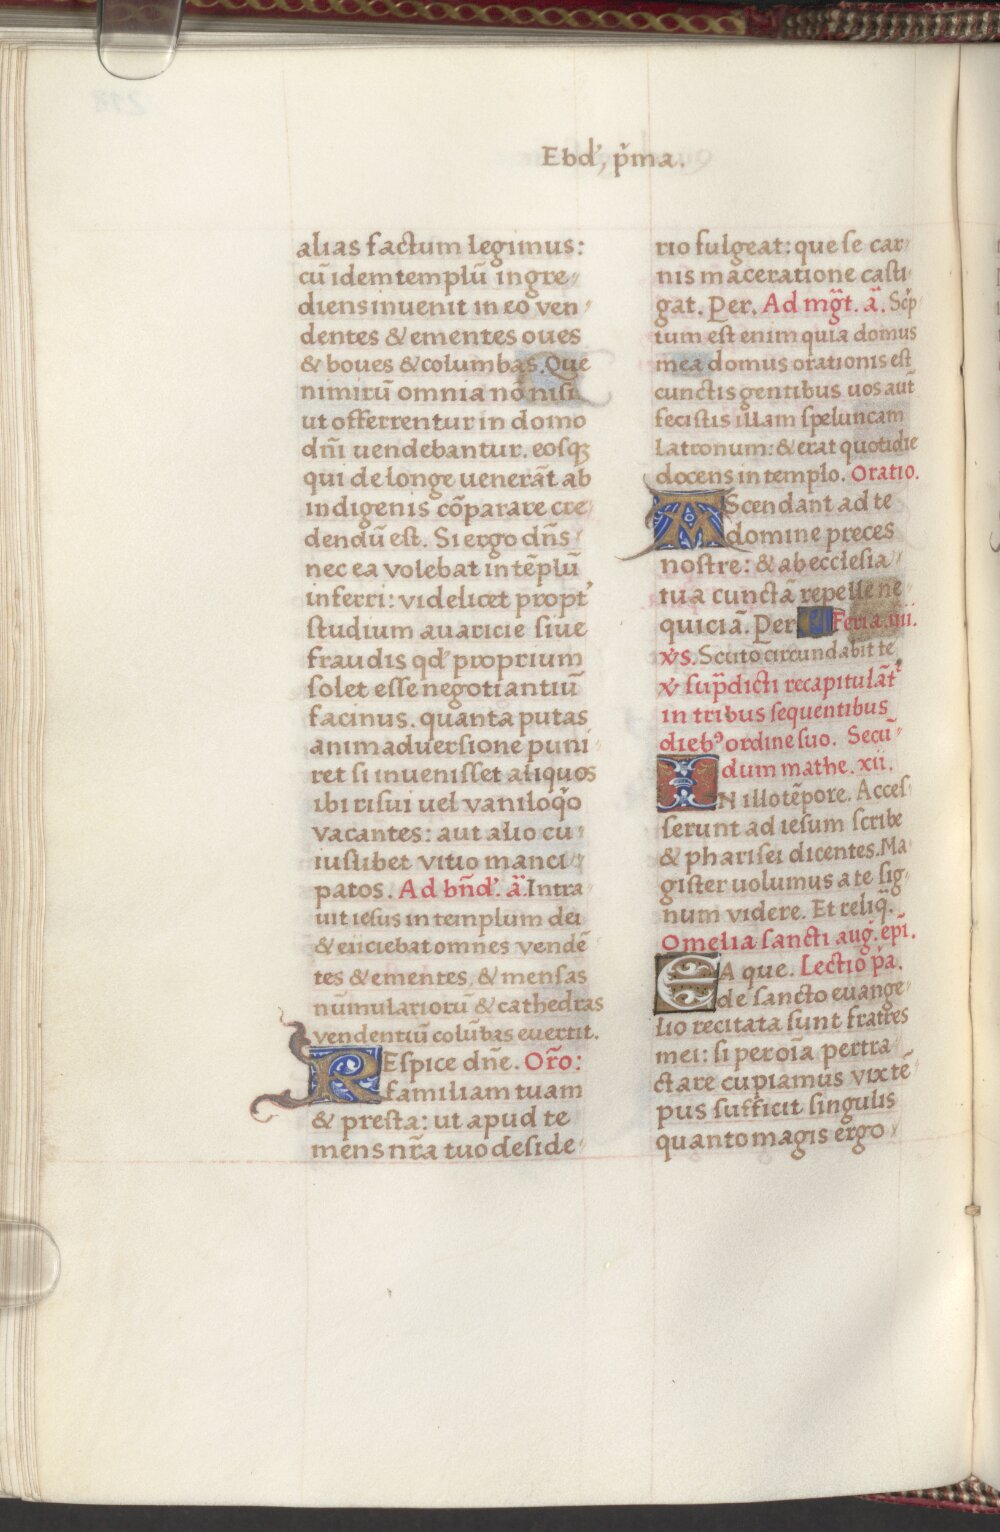 Ebd', p̄ma.
alias factum legimus:
cū idem templū ingre-
diens inuenit in eo ven-
dentes & ementes oues
& boues & columbas. Que
nimirū omnia nō nisi
ut offerrentur in domo
dn̄i uendebantur. eosqꝫ
qui de longe uenerāt ab
indigenis cōparare cre-
dendū est. Si ergo dn̄s
nec ea volebat in tēplū
inferri: videlicet propt'
studium auaricie siue
fraudis qd' proprium
solet esse negotiantiū
facinus. quanta putas
animaduersione puni-
ret si inuenisset aliquos
ibi risui uel vaniloq̄o
vacantes: aut alio cu-
iuslibet vitio manci-
patos. Ad bn̄d'. ā. Intra-
uit iesus in templum dei
& eiiciebat omnes vendē-
tes & ementes, & mensas
nūmulariorū & cathedras
vendentiū colūbas euertit.
REspice dn̄e. Or̄o:
familiam tuam
& presta: ut apud te
mens nr̄a tuo deside-
rio fulgeat: que se car-
nis maceratione casti-
gat. Per. Ad mḡt. ā. Sc̄p-
tum est enim quia domus
mea domus orationis est
cunctis gentibus uos aut̄
fecistis illam speluncam
latronum: & erat quotidie
docens in templo. Oratio.
AScendant ad te
domine preces
nostre: & ab ecclesia
tua cunctā repelle ne-
quiciā. Per. Feria .iiii.
v̄s. Scuto circundabit te
v̄ sup̄dicti recapitulāt'
in tribus sequentibus
dieb⁹ ordine suo. Secū-
dum mathe. xii.
IN illo tēpore. Acces-
serunt ad iesum scribe
& pharisei dicentes. Ma-
gister uolumus a te sig-
num videre. Et reliq̄.
Omelia sancti auḡ. ep̄i.
EA que. Lectio p̄a.
de sancto euange-
lio recitata sunt fratres
mei: si per oīa pertra-
ctare cupiamus vix tē-
pus sufficit singulis
quanto magis ergo